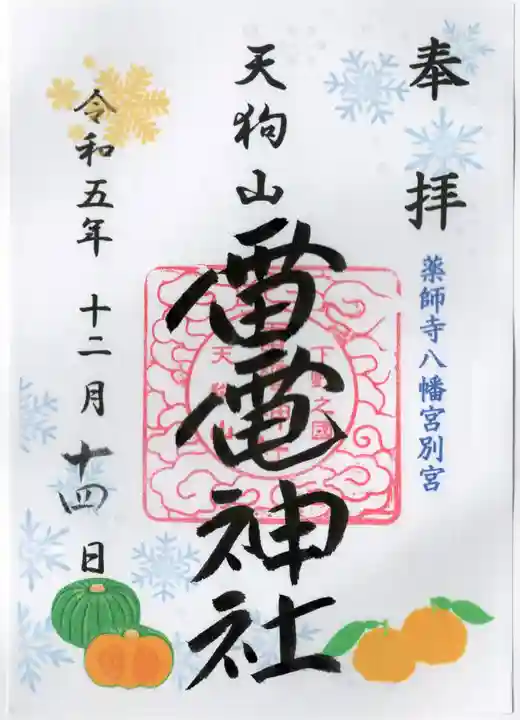 奉拝
薬師寺八幡宮別宮
天狗山
雷電神社
下野之國
天狗山
令和五年 十二月 十四日